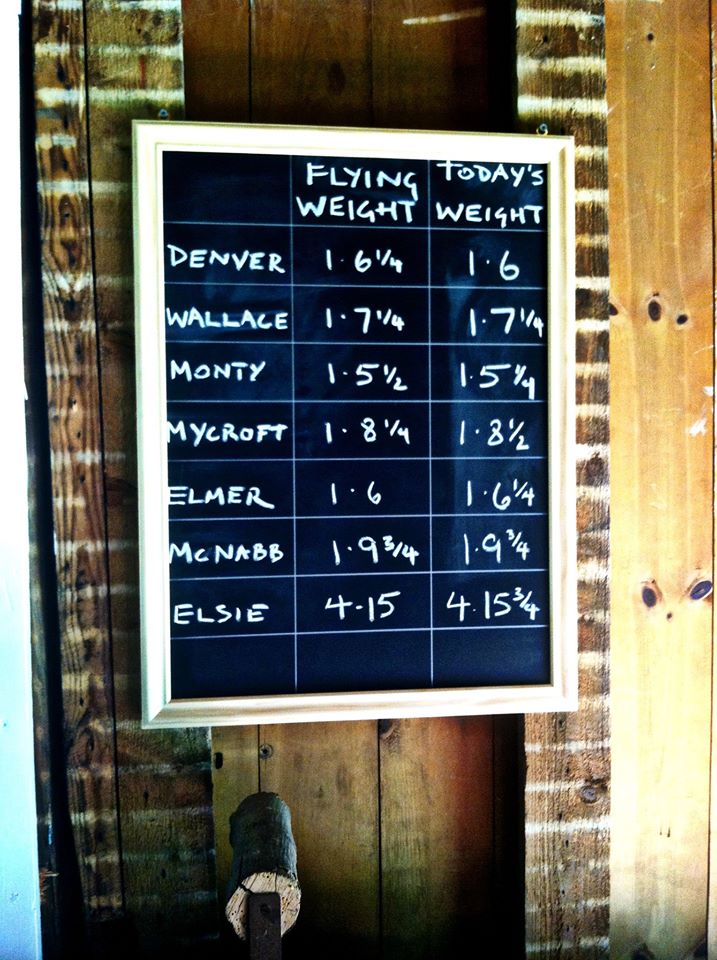 FLYING WEIGHT TODAY'S WEIGHT
DENVER 1·6 1/4 1·6
WALLACE 1·7 1/4 1·7 1/4
MONTY 1·5 1/2 1·5 1/4
MYCROFT 1·8 1/4 1·8 1/2
ELMER 1·6 1·6 1/4
MCNABB 1·9 3/4 1·9 3/4
ELSIE 4-15 4·15 3/4